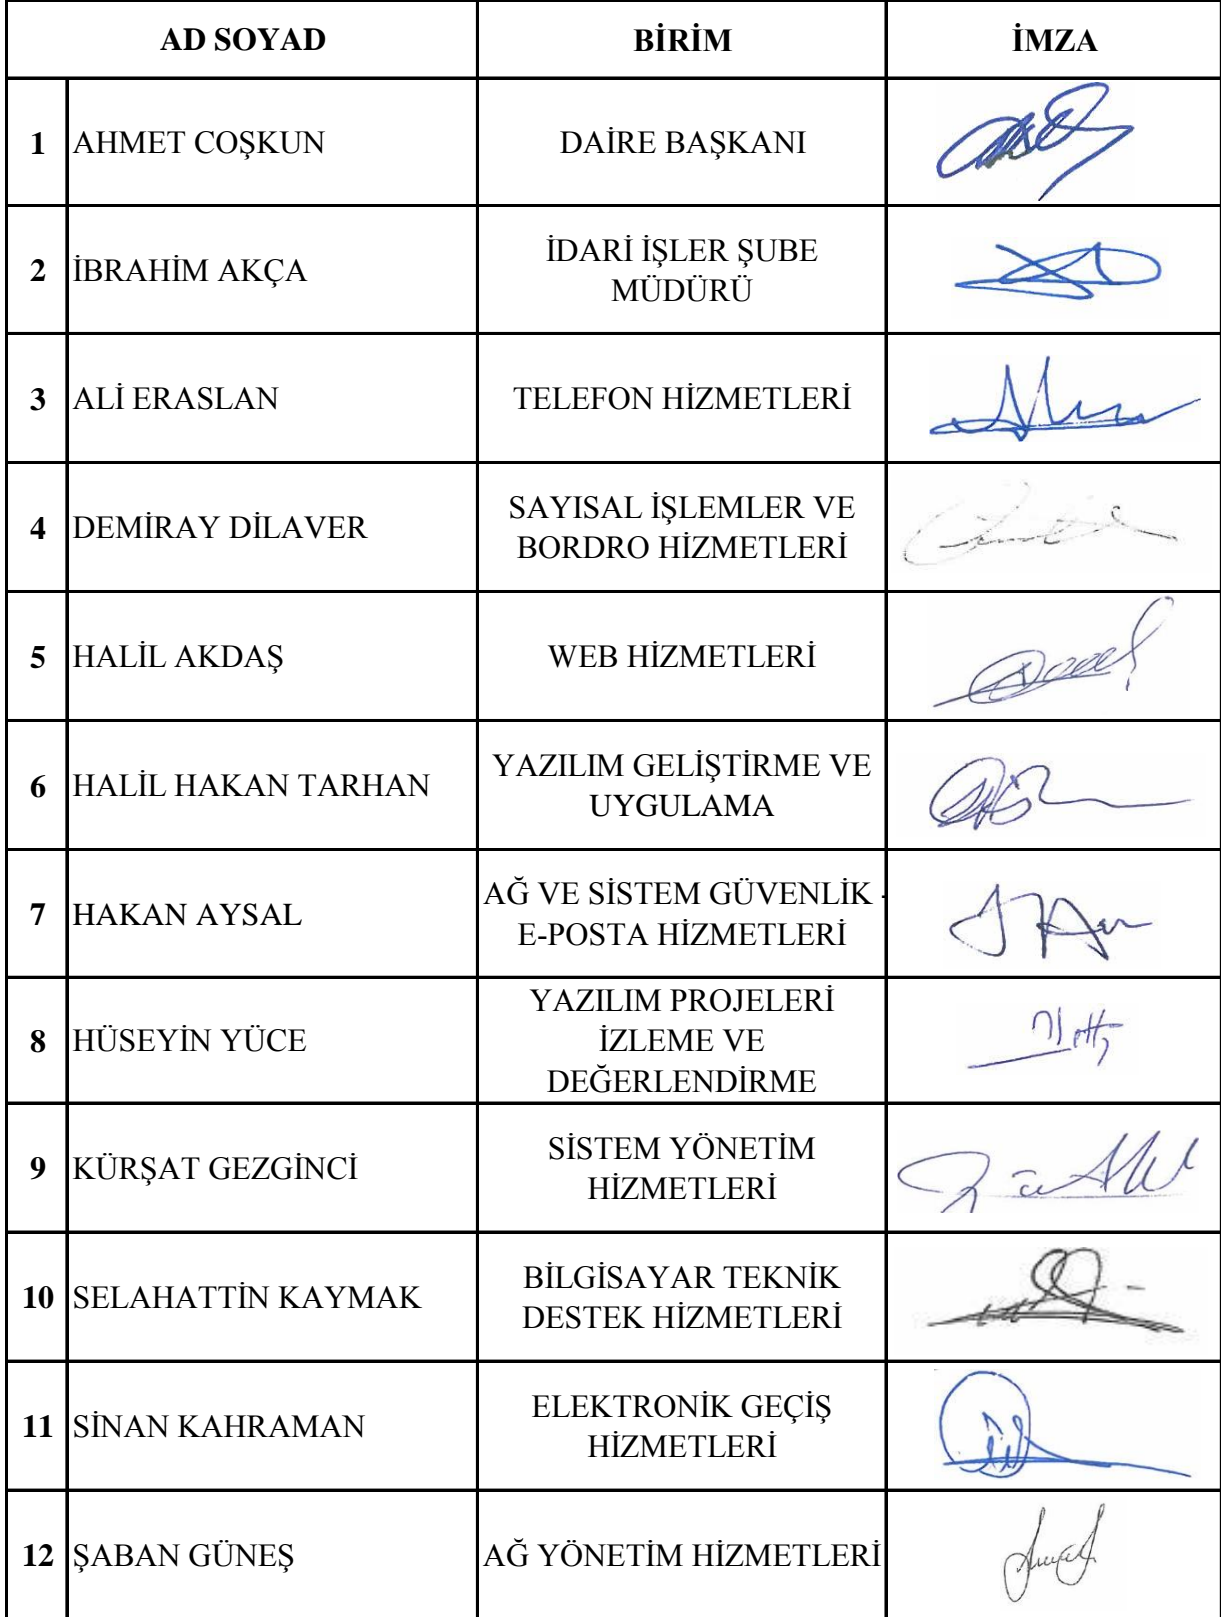 AD SOYAD BİRİM İMZA
1 AHMET COŞKUN DAİRE BAŞKANI
2 İBRAHİM AKÇA İDARİ İŞLER ŞUBE
MÜDÜRÜ
3 ALİ ERASLAN TELEFON HİZMETLERİ
4 DEMİRAY DİLAVER SAYISAL İŞLEMLER VE
BORDRO HİZMETLERİ
5 HALİL AKDAŞ WEB HİZMETLERİ
6 HALİL HAKAN TARHAN YAZILIM GELİŞTİRME VE
UYGULAMA
7 HAKAN AYSAL AĞ VE SİSTEM GÜVENLİK -
E-POSTA HİZMETLERİ
8 HÜSEYİN YÜCE YAZILIM PROJELERİ
İZLEME VE
DEĞERLENDİRME
9 KÜRŞAT GEZGİNCİ SİSTEM YÖNETİM
HİZMETLERİ
10 SELAHATTİN KAYMAK BİLGİSAYAR TEKNİK
DESTEK HİZMETLERİ
11 SİNAN KAHRAMAN ELEKTRONİK GEÇİŞ
HİZMETLERİ
12 ŞABAN GÜNEŞ AĞ YÖNETİM HİZMETLERİ